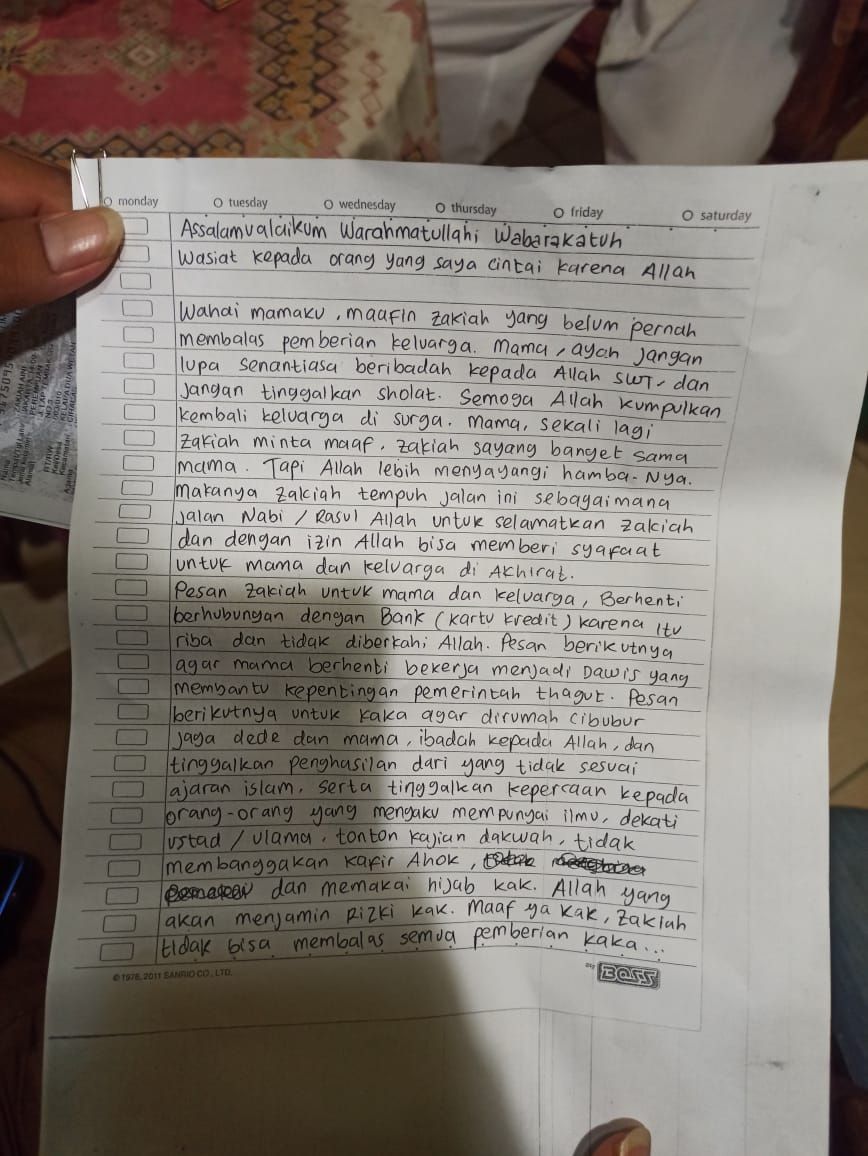 monday tuesday wednesday thursday friday saturday
Assalamualaikum Warahmatullahi Wabarakatuh
Wasiat kepada orang yang saya cintai karena Allah
Wahai mamaku, maafin zakiah yang belum pernah
membalas pemberian keluarga. Mama, ayah jangan
lupa senantiasa beribadah kepada Allah SWT, dan
jangan tinggalkan sholat. Semoga Allah kumpulkan
kembali keluarga di surga. Mama, sekali lagi
zakiah minta maaf, zakiah sayang banget sama
mama. Tapi Allah lebih menyayangi hamba-Nya.
makanya zakiah tempuh jalan ini sebagaimana
jalan Nabi / Rasul Allah untuk selamatkan zakiah
dan dengan izin Allah bisa memberi syafaat
untuk mama dan keluarga di Akhirat.
Pesan zakiah untuk mama dan keluarga, Berhenti
berhubungan dengan Bank (kartu kredit) karena itu
riba dan tidak diberkahi Allah. Pesan berikutnya
agar mama berhenti bekerja menjadi Dawis yang
membantu kepentingan pemerintah thagut. Pesan
berikutnya untuk kaka agar dirumah cibubur
jaga dede dan mama, ibadah kepada Allah, dan
tinggalkan penghasilan dari yang tidak sesuai
ajaran islam. serta tinggalkan kepercaan kepada
orang-orang yang mengaku mempunyai ilmu, dekati
ustad / ulama, tonton kajian dakwah, tidak
membanggakan kafir Ahok,
dan memakai hijab kak. Allah yang
akan menjamin rizki kak. Maaf ya kak, zakiah
tidak bisa membalas semua pemberian kaka...
© 1976, 2011 SANRIO CO., LTD.